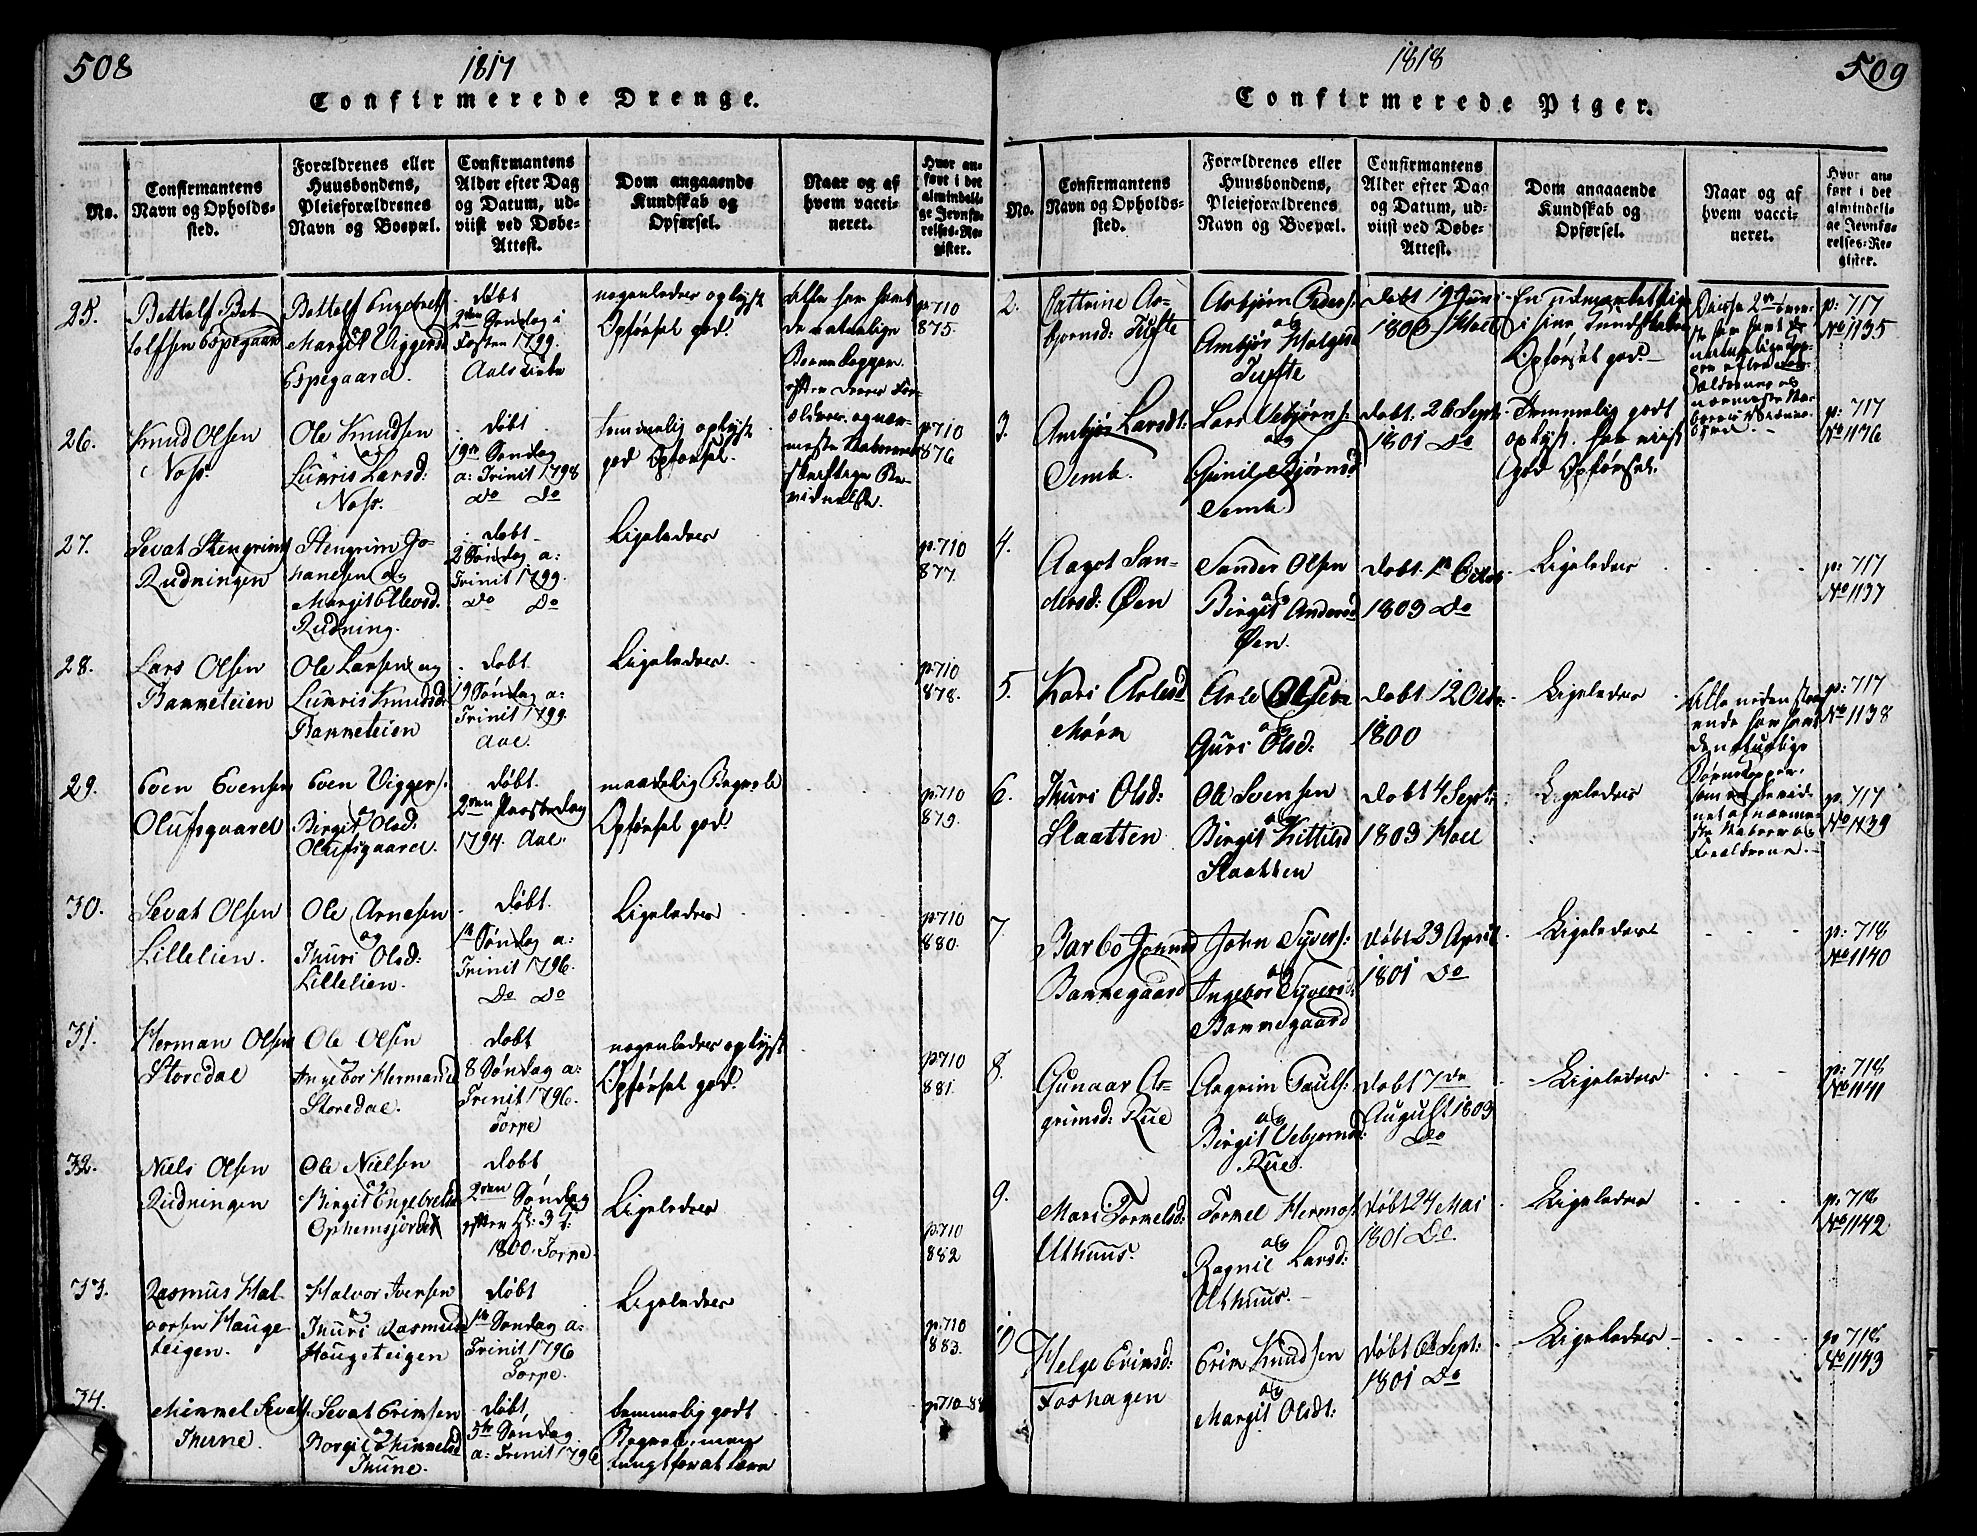 508
1817
Confirmerede Drenge.
No.
Confirmantens
Navn og Opholds-
sted.
Forældrenes eller
Huusbondens,
Pleieforældrenes
Navn og Boepæl.
Confirmantens
Alder efter Dag
og Datum, ud-
viist ved Døbe-
Attest.
Dom angaaende
Kundskab og
Opførsel.
Naar og af
hvem vacci-
neret.
Hvor an-
ført i det
almindeli-
ge Jevnfø-
relses-Re-
gister.
25.
Bottolf Bot
tolfsen Espegaard
Bottolf Engebrets
Margit Viggersd
Espegaard.
døbt
2den Søndag i
Fasten 1799.
Aals Kirke
nogenledes oplyst
Opførsel god.
Alle har havt
de naturlige
Børnekopper
efter deres For-
ældres og nær-
meste Naboers
skriftlige Be-
vidnelse.
p 710
875.
26.
Knud Olsen
Noss.
Ole Knudsen
og
Lunris Larsd:
Noss.
døbt
19de Søndag
a: Trinit 1798
Do Do
temmelig oplyst
god Opførsel.
p 710
876
27.
Sevat Stengrims
Rudningen
Stengrim Jo-
hanesen og
Margit Ellevsd.
Rudning.
døbt
2 Søndag a:
Trinit 1799.
Do Do
Ligeledes
p. 710
877.
28.
Lars Olsen
Bammeteien
Ole Larsen og
Lunris Knudsd
Bammeteien
døbt
19 Søndag a:
Trinit 1799.
Aal.
Ligeledes.
p 710
878.
29.
Even Evensen
Olufsgaard
Even Viggers:
og
Birgit Olsd:
Olufsgaard.
døbt.
2den Paaskedag
1794. Aal.
maadelig Begreb
Opførsel god.
p. 710
879.
30.
Sevat Olsen
Lillelien.
Ole Arnesen
og
Thuri Olsd:
Lillelien.
døbt.
1ste Søndag a:
Trinit 1796.
Do Do
Ligeledes
p 710
880.
31.
Herman Olsen
Storedal
Ole Olsen
og
Ingebor Hermansd
Storedal.
døbt
8 Søndag a:
Trinit 1796.
Torpe
nogenledes oplyst
Opførsel god.
p 710
881.
32.
Niels Olsen
Rudningen
Ole Nielsen
og
Birgit Engebretsd
Ophemsjordet
døbt
2den Søndag
efter H: 3 K:
1800. Torpe.
Ligeledes
p 710
882
33.
Rasmus Hal-
vorsen Hauge-
teigen.
Halvor Iversen
og
Thuri Rasmusd
Haugeteigen
døbt
1ste Søndag a:
Trinit 1796
Torpe.
Ligeledes
p 710
883.
34.
Himmel Sevats:
Thune.
Sevat Erimsen
og
Borgil Himmelsd
Thune.
døbt,
5te Søndag
a: Trinit 1796
temmelig godt
Begreb, men
tungt for at lære
p 710 88
1818
509
Confirmerede Piger.
No.
Confirmantens
Navn og Opholds-
sted.
Forældrenes eller
Huusbondens,
Pleieforældrenes
Navn og Boepæl.
Confirmantens
Alder efter Dag
og Datum, ud-
viist ved Døbe-
Attest.
Dom angaaende
Kundskab og
Opførsel.
Naar og af
hvem vacci-
neret.
Hvor an-
ført i det
almindeli-
ge Jevnfø-
relses-Re-
gister.
2.
Cattrine As-
bjørnsd: Tufte
Asbjørn Peders:
og
Ambjør Helgesd
Tufte
døbt 19 Juni
1803 Hoel
En udmærket Pige
i sine Kundskaber
Opførsel god.
Disse 2de første
har havt de
naturlige Kop-
per efter For-
ældrenes og
nærmeste Na-
boers
p: 717
No 1135
3.
Ambjør Larsdt:
Semb.
Lars Vebjørns:
og
Gunil Bjørnsd
Semb
døbt. 26 Septr
1801 Do
Temmelig godt
oplyst. har viist
god Opførsel.
p: 717
No 1136
4.
Aagot San-
dersd: Øen
Sander Olsen
og
Birgit Andersd
Øen.
døbt. 1ste Octbr
1803 Do
Ligeledes
p: 717
No 1137
5.
Kari Arlesd
Mørn
Arle Olsen
og
Guri Olsd:
døbt 12 Octr:
1800
Ligeledes
Alle nedenstaa-
ende har havt
de naturlige
Børnekopper,
som er bevid-
net af nærme-
ste Naboer og
Forældrene.
p: 717
No 1138
6.
Thuri Olsd:
Slaatten
Ole Svensen
og
Birgit Kittilsd
Slaatten
døbt 4 Septr:
1803 Hoel
Ligeledes
p: 717
No 1139
7.
Barbo Jonsd
Bammegaard
John Syvers:
og
Ingebor Syversd:
Bammegaard
døbt 23 April
1801 Do
Ligeledes
p: 718
No 1140
8.
Gunaar As-
grimsd: Rue
Asgrim Pauls:
og
Birgit Vebjørnsd:
Rue.
døbt 7de
August 1803
Do
Ligeledes
p: 718
No 1141
9.
Mari Tormelsd:
Uthuus
Tormel Hermos:
og
Ragnil Larsd:
Uthuus.
døbt 24 Mai
1801 Do.
Ligeledes
p: 718
No 1142
10.
Helge Erimsd:
Foshagen
Erim Knudsen
og
Margit Olsdt:
døbt 6te Sept:
1801 Do
Ligeledes
p: 718
No 1143